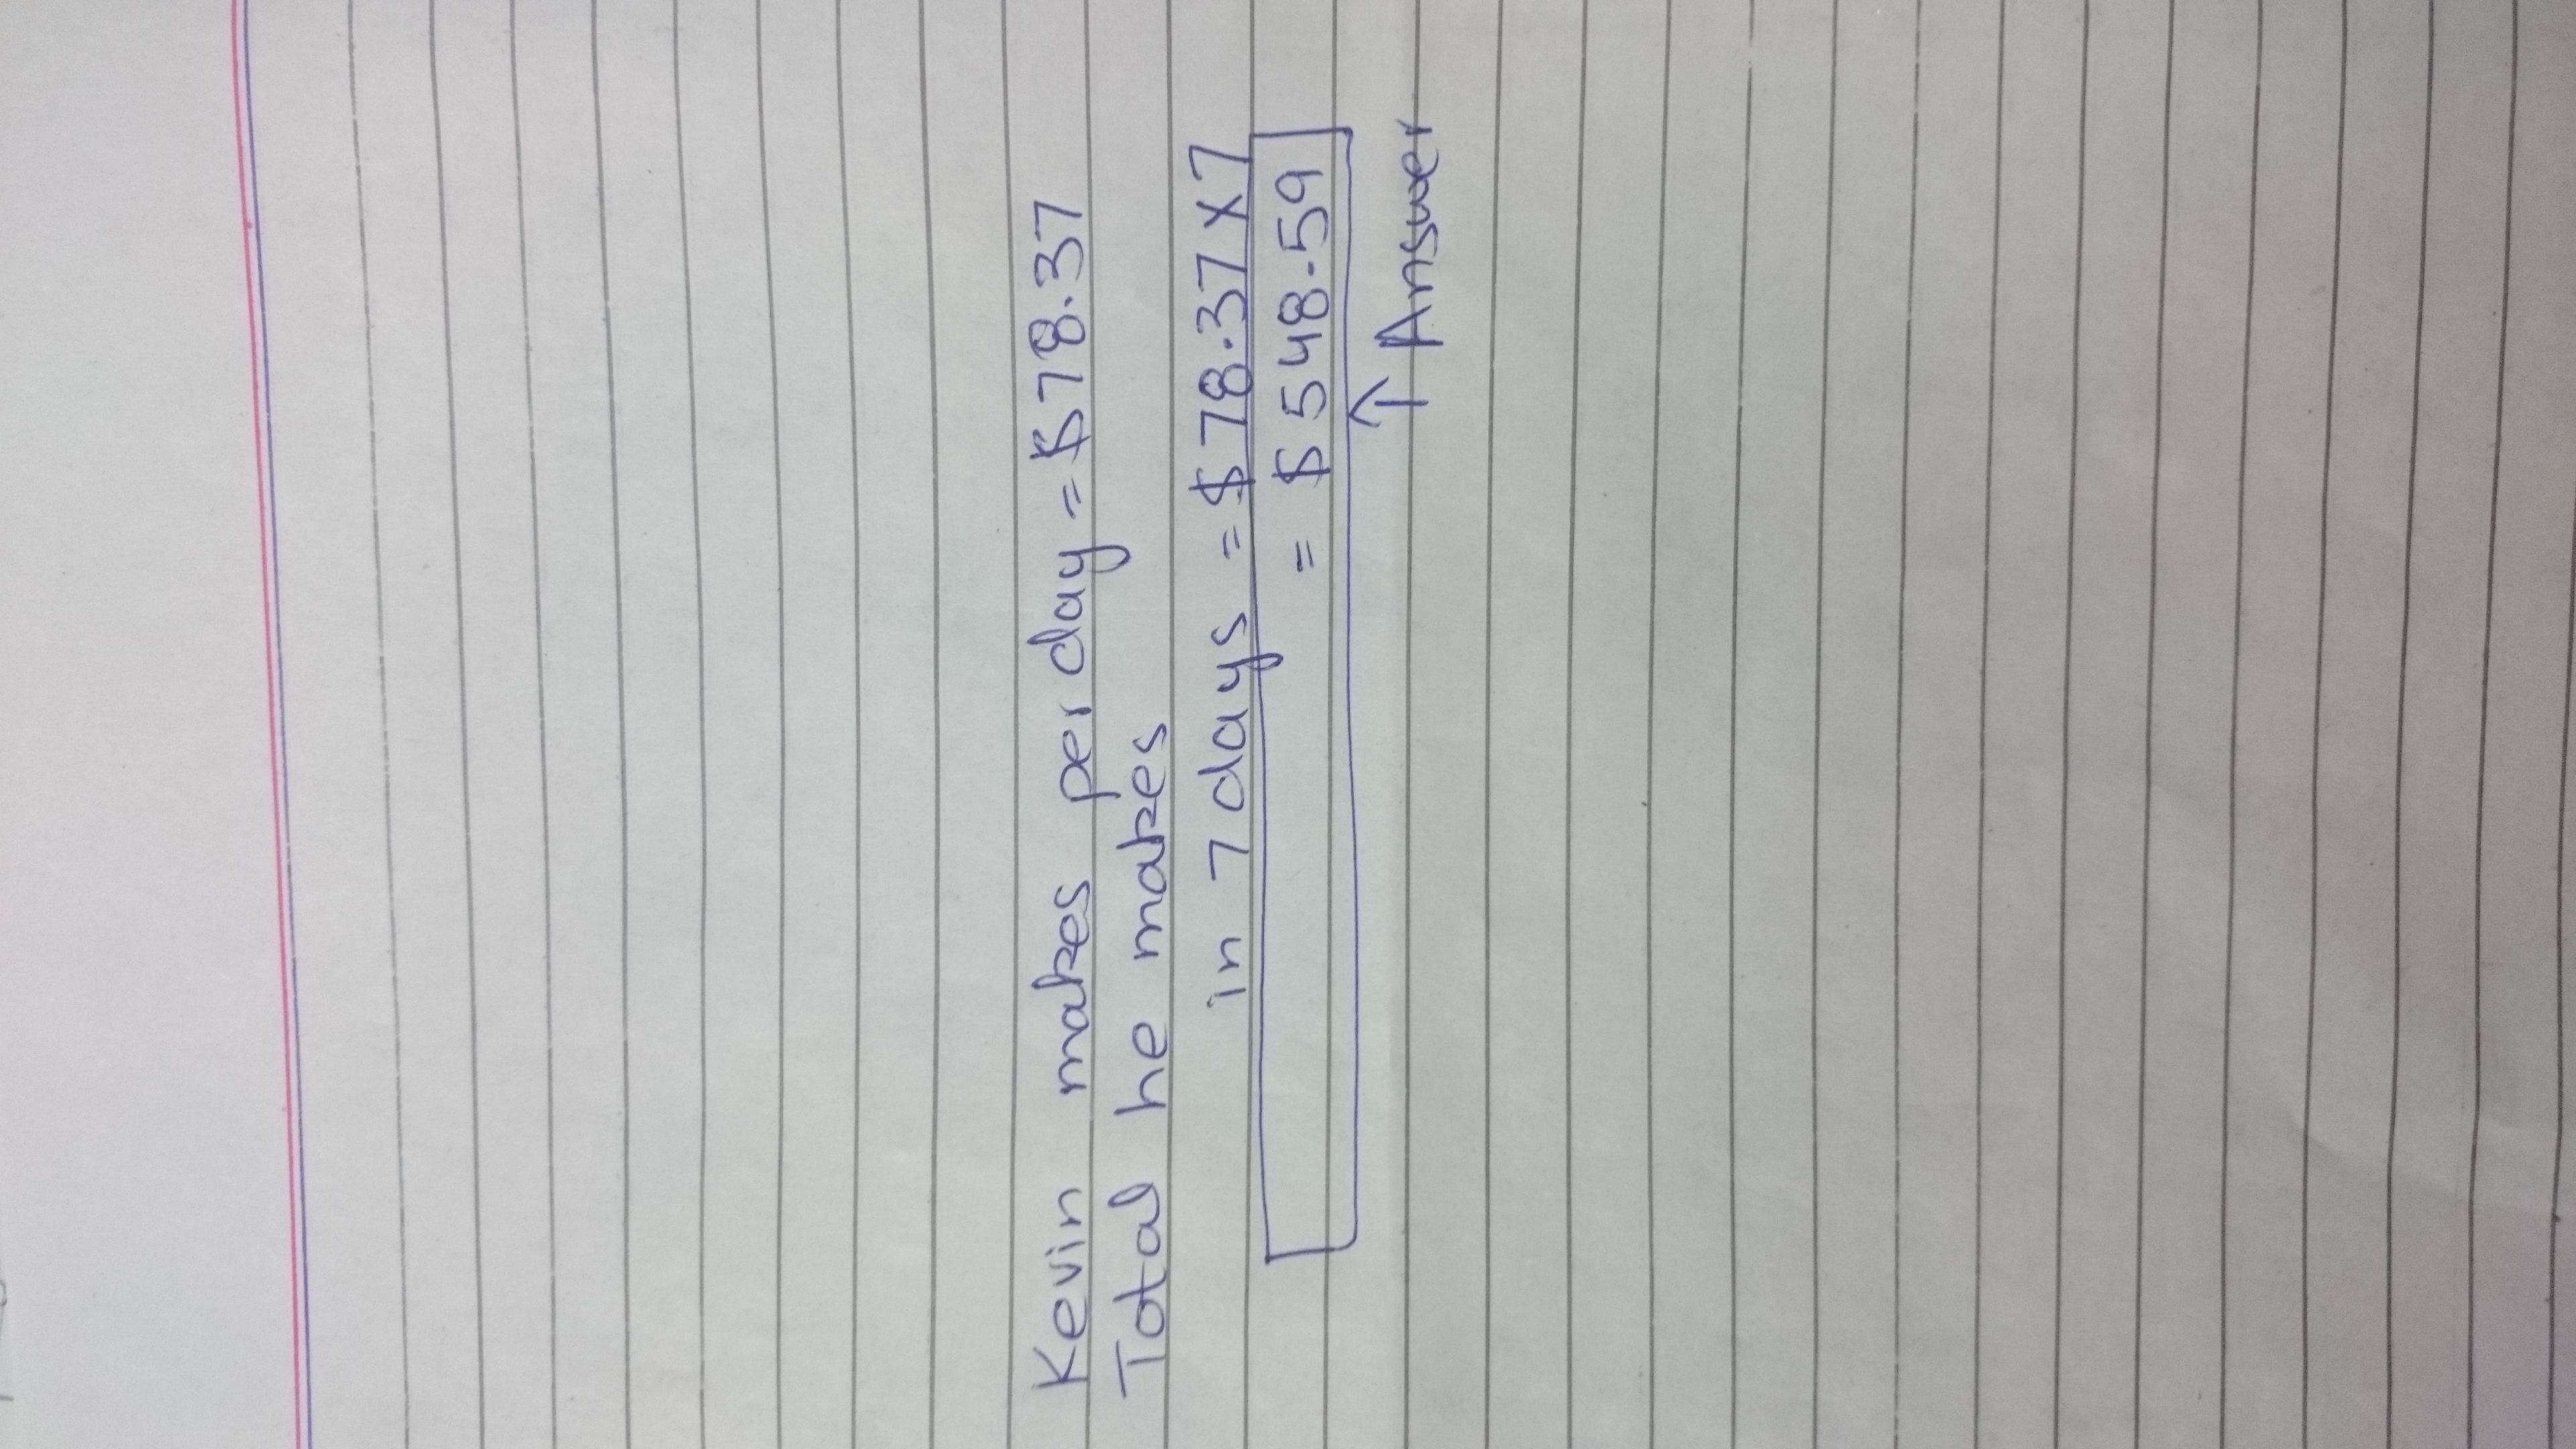 Kevin makes per day = $78.37
Total he makes
in 7 days = $78.37x7
= $548.59
↑ Answer